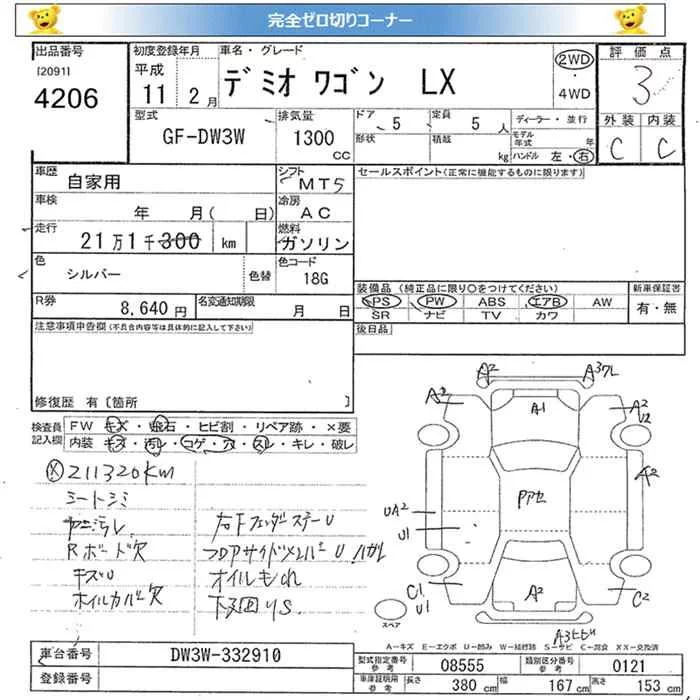 完全ゼロ切りコーナー
出品番号 [2091] 4206
初度登録年月 平成 11年 2月
車名・グレード デミオ ワゴン LX
2WD ・ 4WD
評価点 3
型式 GF-DW3W
排気量 1300 CC
ドア 5 形状
定員 5 人 積載 kg
ディーラー・並行
モデル年式 年
ハンドル 左・右
外装 C 内装 C
車歴 自家用
シフト MT5
セールスポイント(正常に機能するものに限ります)
車検 年 月( 日)
冷房 AC
走行 21万1千300 km
燃料 ガソリン
色 シルバー 色替
色コード 18G
装備品 (純正品に限り○をつけてください)
新車保証書
PS PW ABS エアB AW
SR ナビ TV カワ
有・無
R券 8,640 円
名変通知期限 月 日
注意事項申告欄(不具合内容等は具体的に記入して下さい)
後日品
修復歴 有〔箇所 〕
検査員記入欄
FW キズ・飛石・ヒビ割・リペア跡・×要
内装 キズ・汚れ・コゲ・穴・スレ・キレ・破レ
211320KM
シートシミ
Rボード欠
キズU
ホイルカバ欠
右Fフェンダーステー U
オイルもれ
下回りS
A2
A1
A2
U2
A2
UA2
U1
C1
U1
A2
C2
スペア
A-キズ E-エクボ U-凹み W-補修跡 S-サビ C-腐食 XX-交換済
車台番号 DW3W-332910
登録番号
型式指定番号 参考 08555
類別区分番号 参考 0121
車庫証明用 参考 長さ 380 cm 幅 167 cm 高さ 153 cm